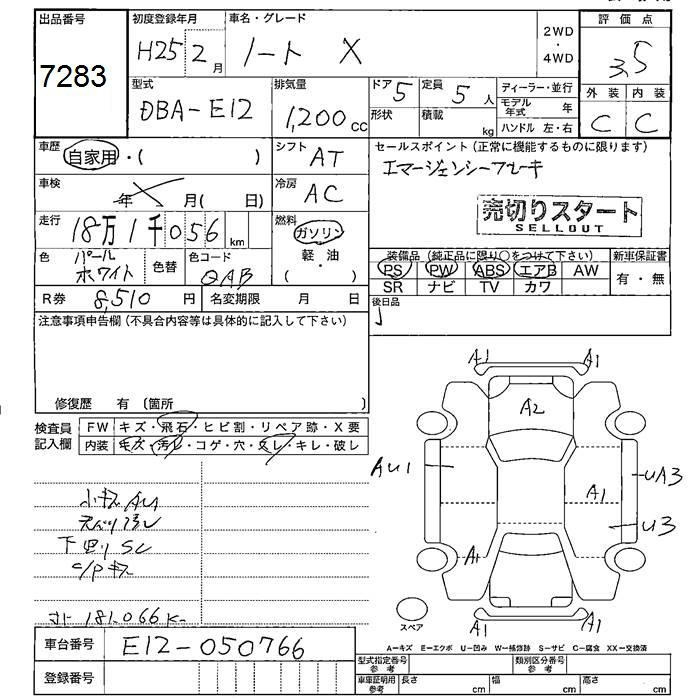 出品番号
7283
初度登録年月
H25 2月
車名・グレード
ノート X
2WD
・
4WD
評価点
3.5
型式
DBA-E12
排気量
1,200cc
ドア 5
形状
定員 5人
積載 kg
ディーラー・並行
モデル年式 年
ハンドル 左・右
外装 内装
C C
車歴
自家用・( )
シフト
AT
車検
年 月( 日)
冷房
AC
走行
18万1千056km
燃料
ガソリン
軽・油
( )
色
パール
ホワイト
色替
色コード
QAB
R券 8,510円
名変期限 月 日
セールスポイント(正常に機能するものに限ります)
エマージェンシーブレーキ
売切りスタート
SELLOUT
装備品(純正品に限り○をつけて下さい)
PS PW ABS エアB AW
SR ナビ TV カワ
新車保証書
有・無
後日品
注意事項申告欄(不具合内容等は具体的に記入して下さい)
修復歴 有 〔箇所 〕
検査員
記入欄
FW キズ・飛石・ヒビ割・リペア跡・X要
内装 キズ・汚レ・コゲ・穴・スレ・キレ・破レ
小キズAU
下回りSC
C/Pキズ
181,066K
車台番号 E12-050766
登録番号
A1 A1
A2
AU1
UA3
A1
U3
A1
A1 A1
スペア
A-キズ E-エクボ U-凹み W-補修跡 S-サビ C-腐食 XX-交換済
型式指定番号
参考
類別区分番号
参考
車庫証明用
参考
長さ cm 幅 cm 高さ cm